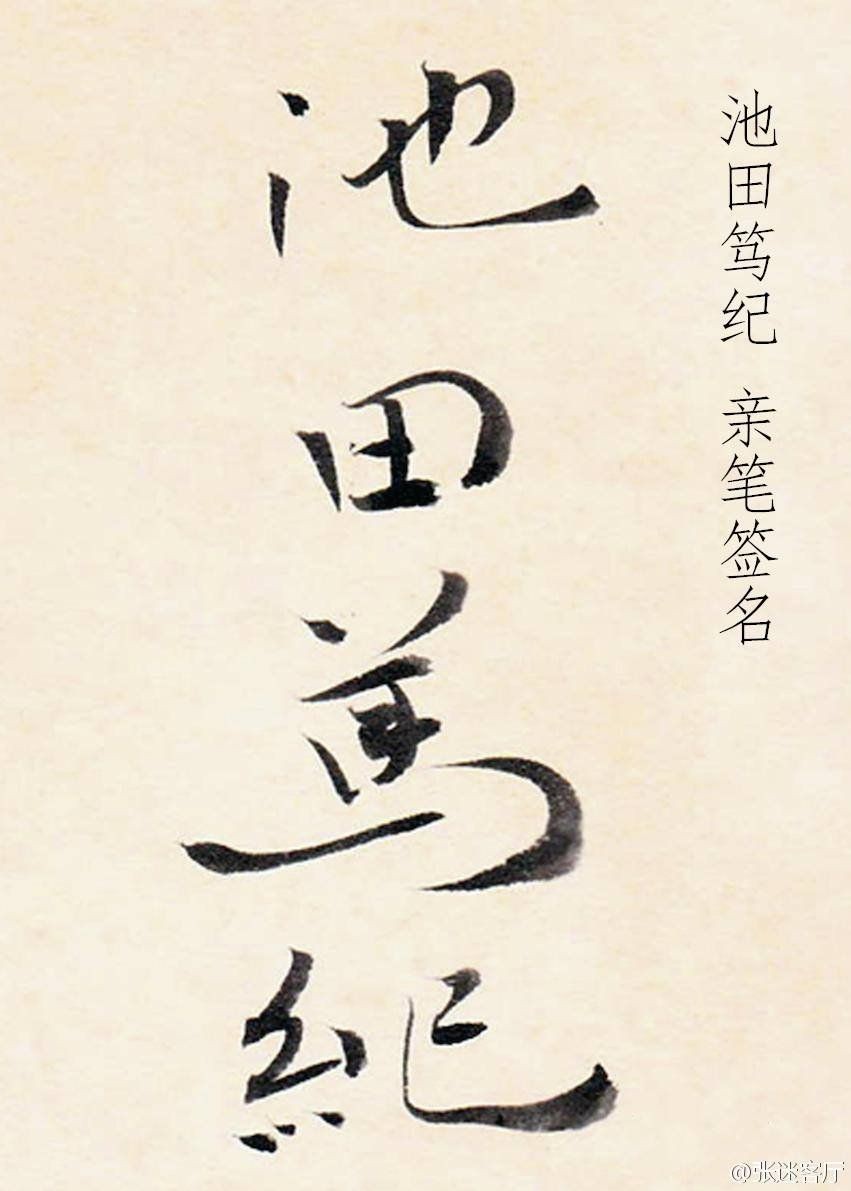 池田笃纪 亲笔签名
池田篤紀
@张迷客厅